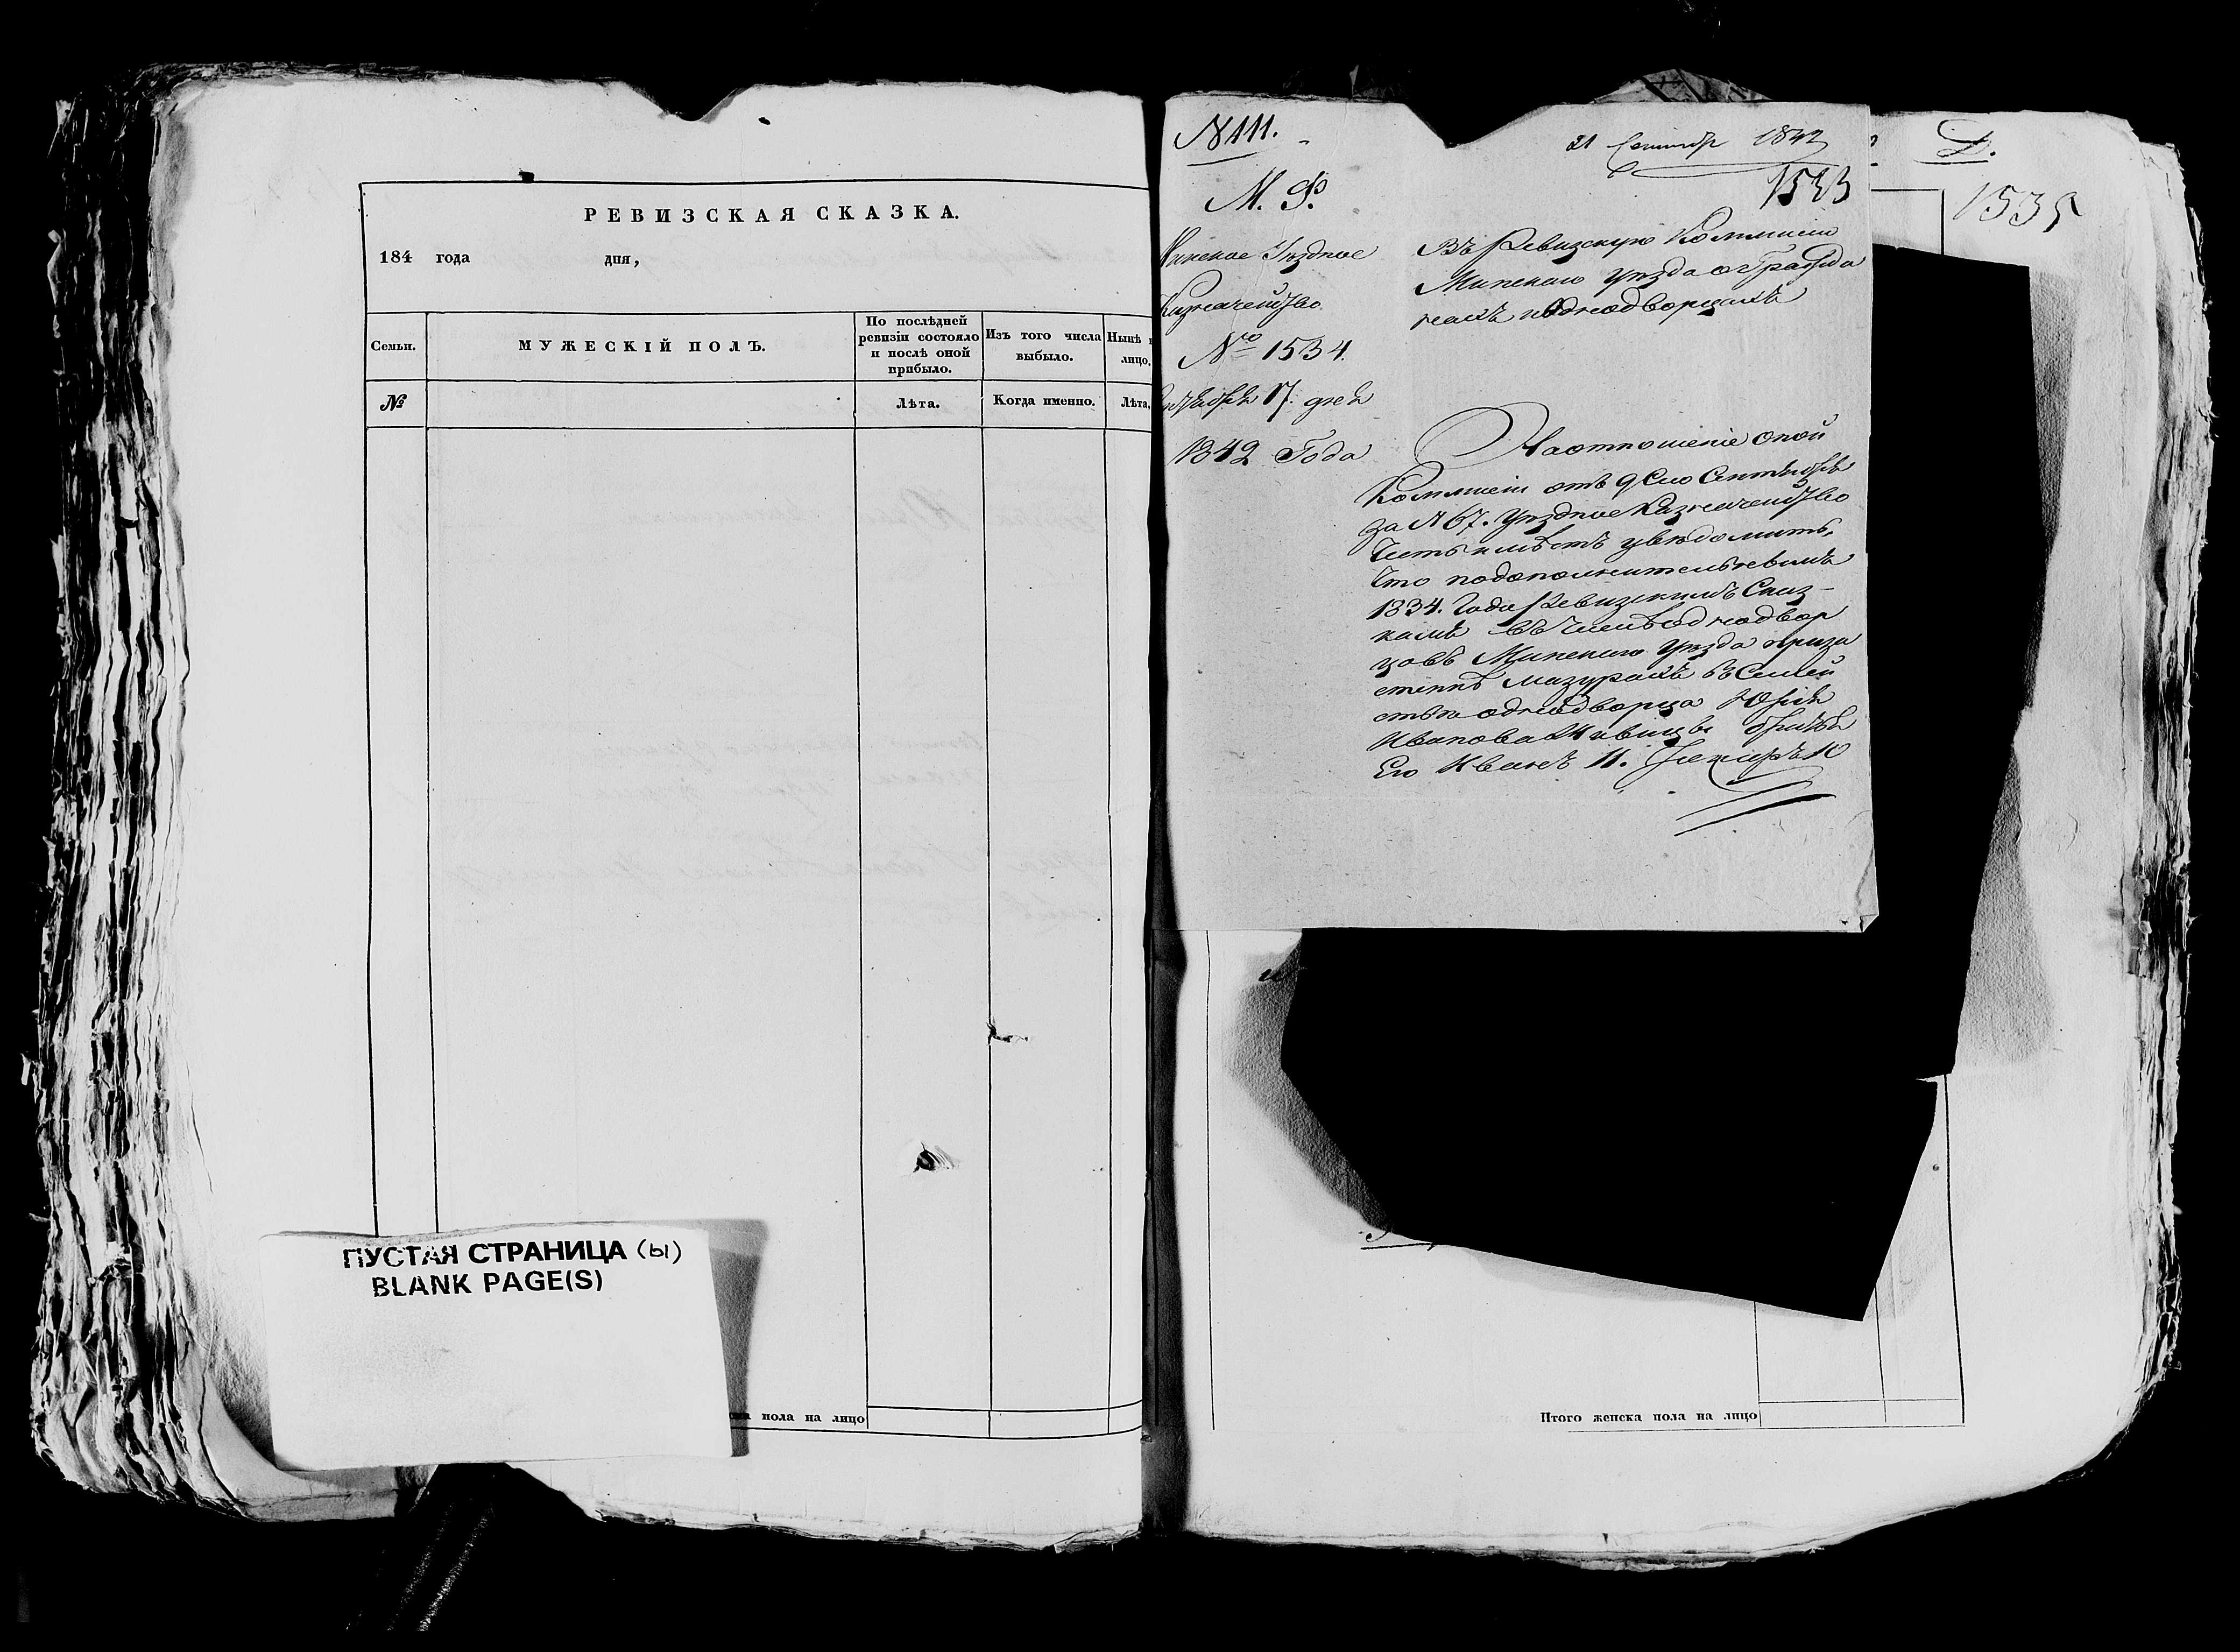 РЕВИЗСКАЯ СКАЗКА.
184 года дня,
Семьи.
МУЖЕСКІЙ ПОЛЪ.
По послѣдней ревизіи состояло и послѣ оной прибыло.
Изъ того числа выбыло.
Нынѣ
лицо.
№
Лѣта.
Когда именно.
Лѣта,
ПУСТАЯ СТРАНИЦА (ы)
BLANK PAGE(S)
пола на лицо
N 111.
21 1842
1533
М. Ф.
Минское Уѣздное
Казначейство
№ 1534.
Сентября 17 дня
1842 Года
Въ Ревизскую Коммисію
Минскаго уѣзда о Гражда
нахъ и Однодворцахъ
На отношеніе оной
Коммисіи отъ 9 Сего Сентября
за N 67. Уѣздное Казначейство
Честь имѣетъ увѣдомить,
Что по дополнительнымъ
1834. Года Ревизскимъ Сказ-
камъ въ числѣ однодвор
цовъ Минскаго уѣзда
въ Семей
ствѣ однодворца Юрія
Иванова
Его Иванъ 11. 10
1535
Итого женска пола на лицо